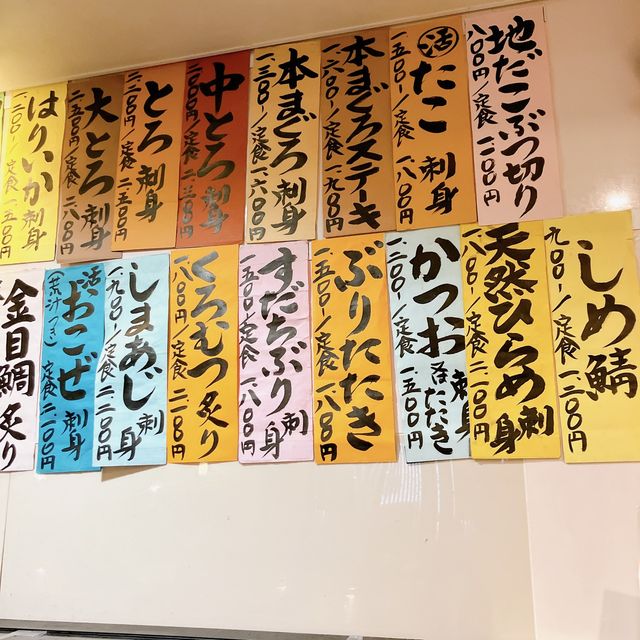 地だこぶつ切り
八〇〇円/定食 一、一〇〇円
活たこ刺身
一、五〇〇-/定食 一、八〇〇円
本まぐろステーキ
一、六〇〇-/定食 一、九〇〇円
本まぐろ刺身
一、三〇〇-/定食 一、六〇〇円
中とろ刺身
とろ刺身
二、二〇〇円/定食 二、五〇〇円
大とろ刺身
二、五〇〇円/定食 二、八〇〇円
はりいか刺身
一、二〇〇-/定食 一、五〇〇円
しめ鯖
九〇〇-/定食 一、二〇〇円
天然ひらめ刺身
一、八〇〇-/定食 二、一〇〇円
かつお刺身
たたき
一、二〇〇-/定食 一、五〇〇円
ぶりたたき
一、五〇〇-/定食 一、八〇〇円
すだちぶり刺身
一、五〇〇-/定食 一、八〇〇円
くろむつ炙り
一、八〇〇円/定食 二、一〇〇円
しまあじ刺身
一、九〇〇-/定食 二、二〇〇円
活おこぜ刺身
金目鯛炙り